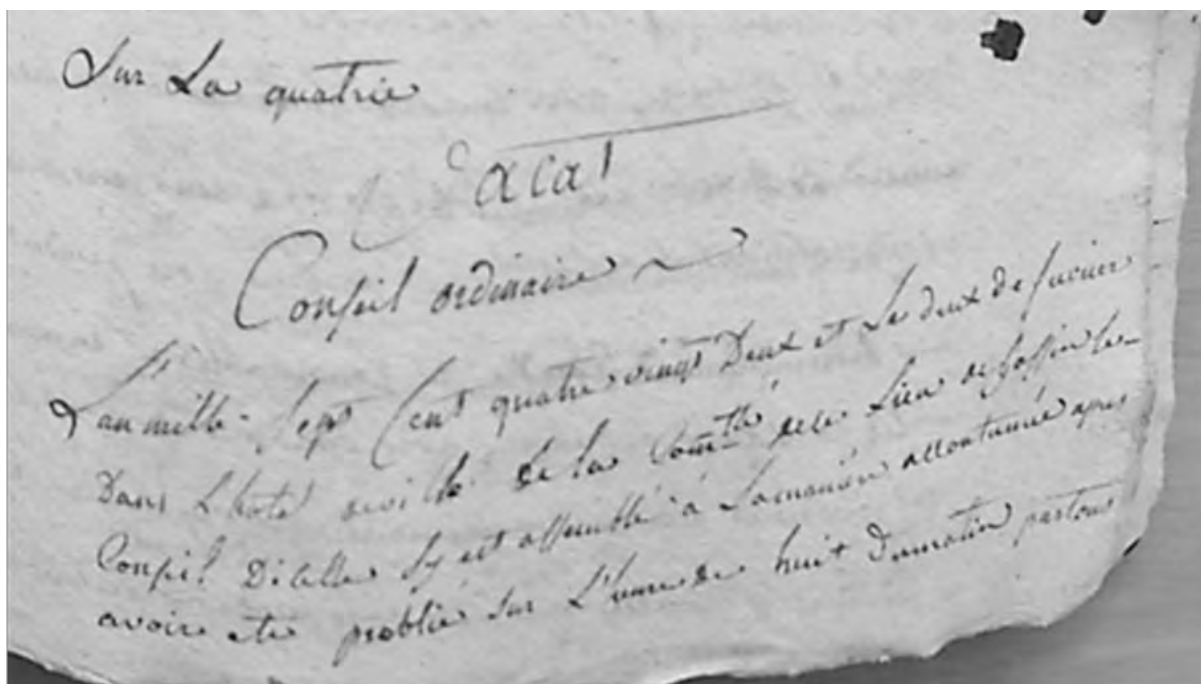 Sur La quatrie
Vacat
Conseil ordinaire
L'an mille Sept Cent quatre vingt Deux et Le deux de fevrier
Dans L'hotel deville de la Comté de ce Lieu de le
Conseil D'icelle S'y est assemblé à Lamaniere accoutumée apres
avoire eté problié sur L'heure de huit Dumatin partous